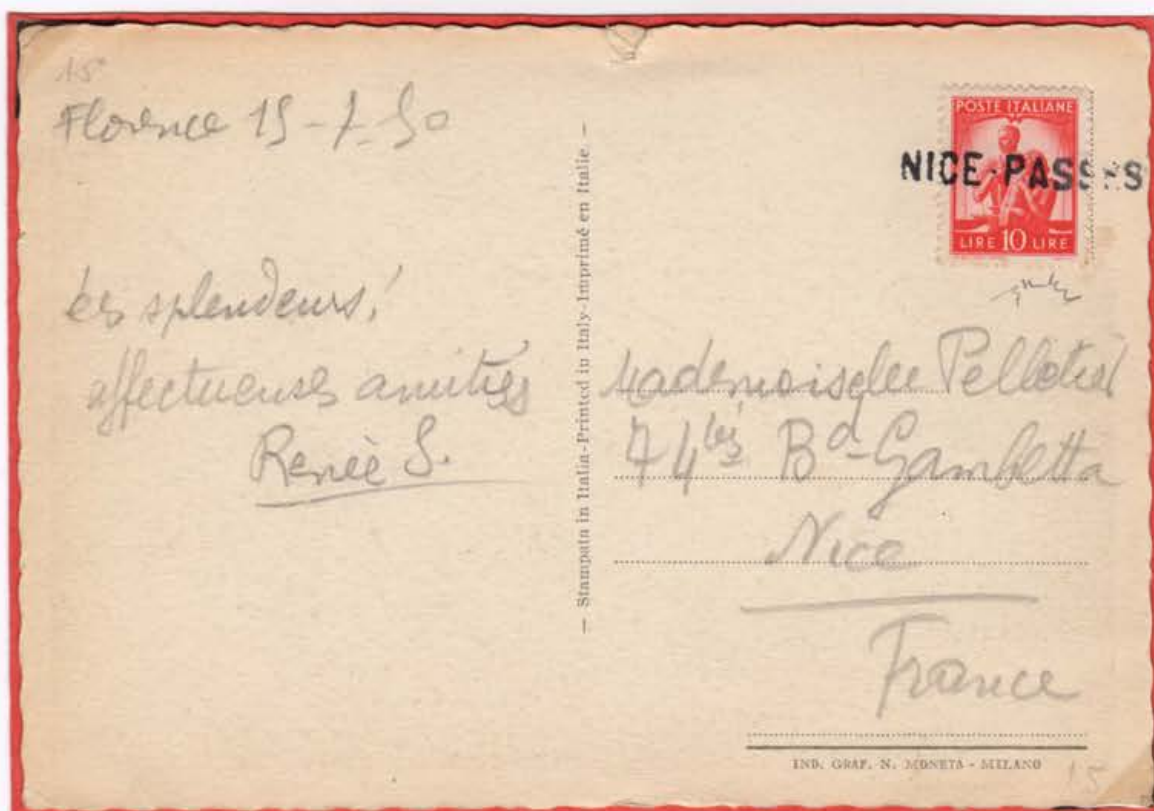 15
Florence 15-7-50
les splendeurs!
affectueuses amitiés
Renée S.
— Stampata in Italia-Printed in Italy-Imprimé en Italie —
POSTE ITALIANE
NICE-PASS
LIRE 10 LIRE
Mademoiselle Pelletier
74bis Bd Gambetta
Nice
France
IND. GRAF. N. MONETA - MILANO
15